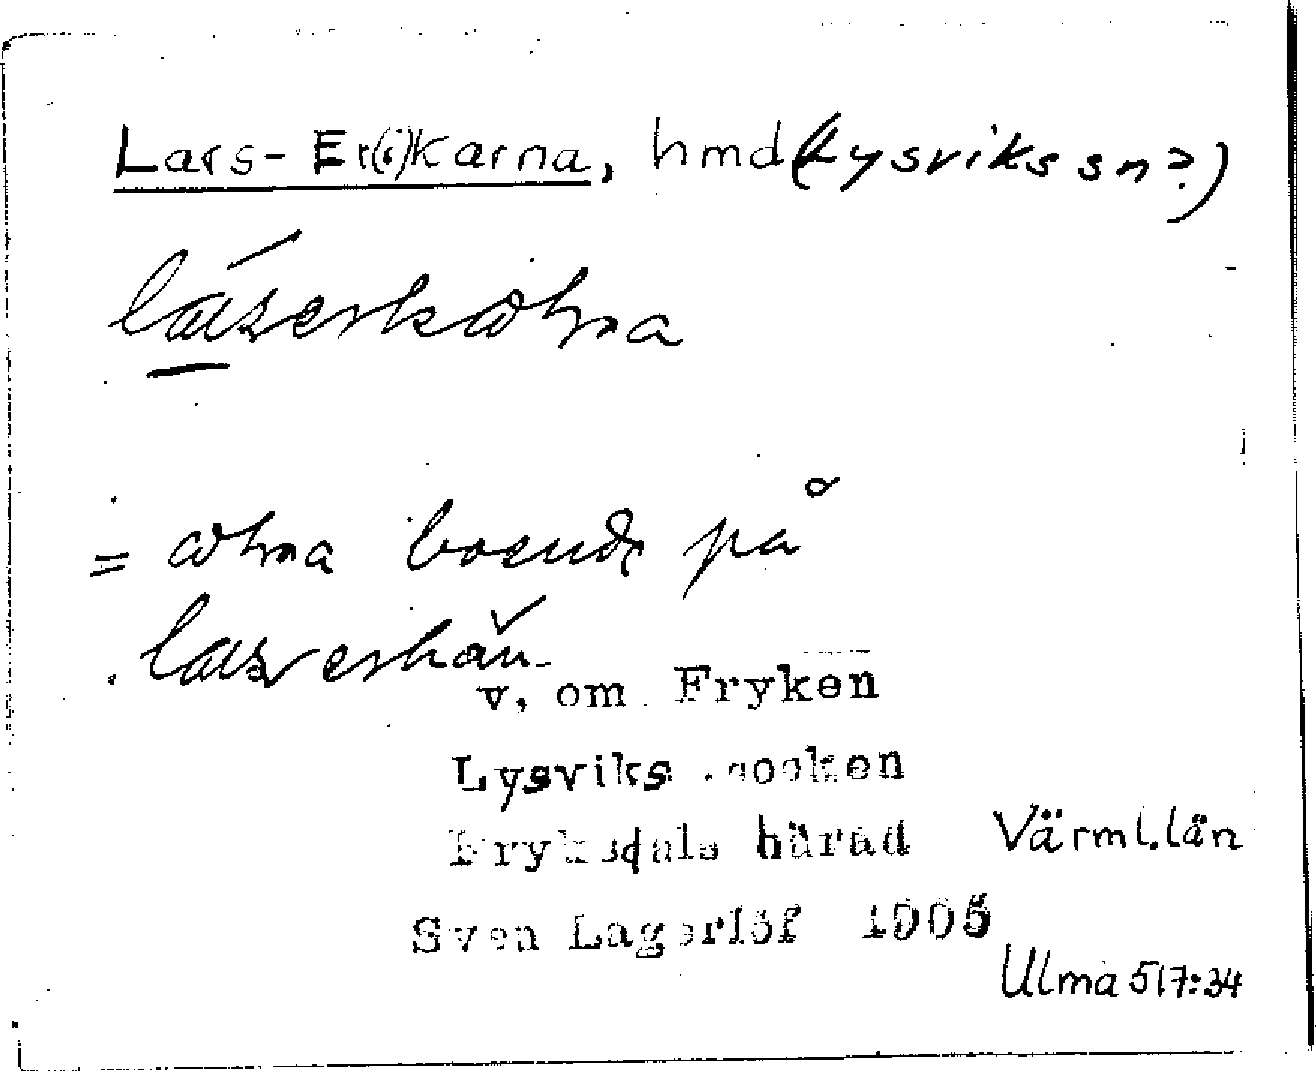 Lars-Er(i)karna, hmd (Lysviks sn?)
= boende på
v. om Fryken
Lysviks socken
Fryksdals härad Värml. län
Sven Lagerlöf 1905
Ulma 517:34